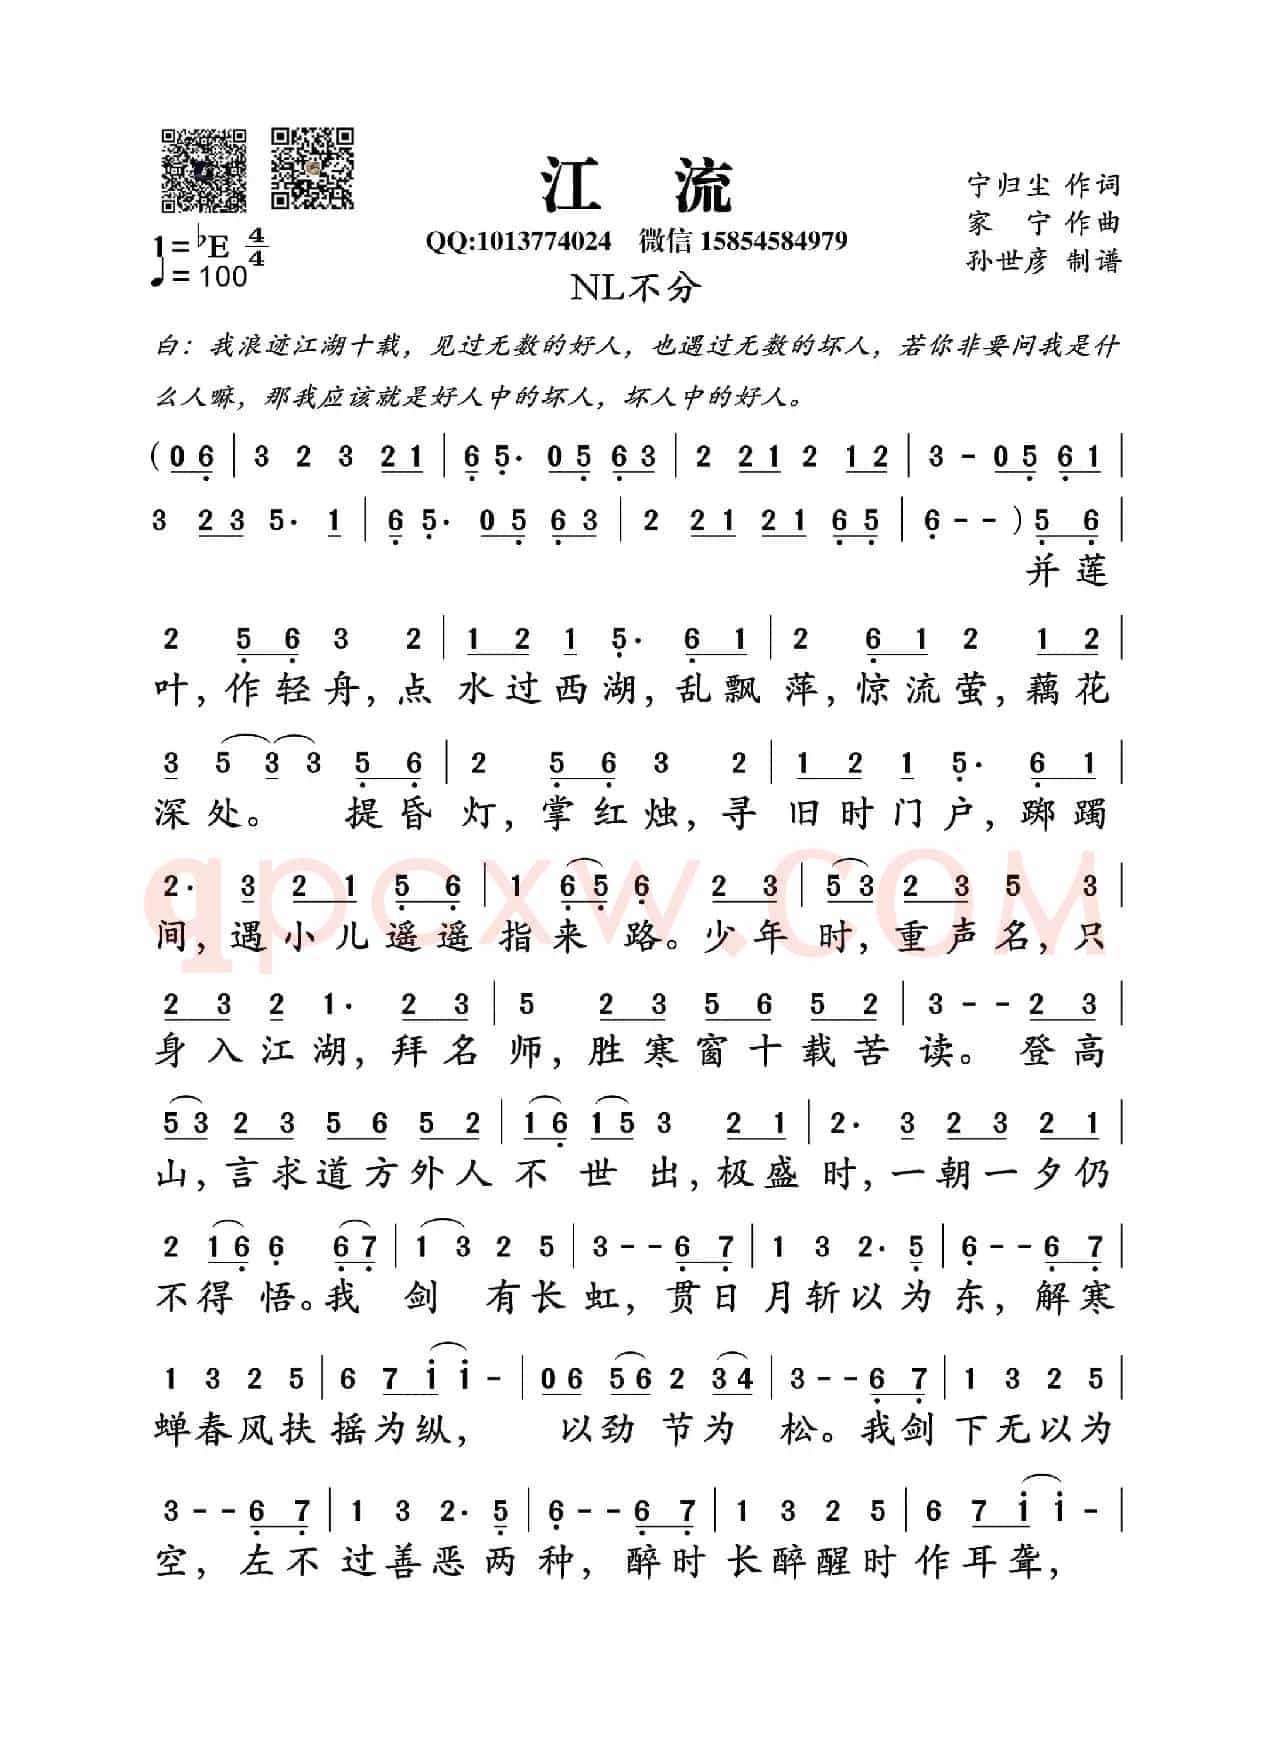 江 流
宁归尘 作词
家 宁 作曲
孙世彦 制谱
1=♭E 4/4
♩=100
QQ:1013774024 微信 15854584979
NL不分
白：我浪迹江湖十载，见过无数的好人，也遇过无数的坏人，若你非要问我是什
么人嘛，那我应该就是好人中的坏人，坏人中的好人。
(0 6 | 3 2 3 2 1 | 6 5· 0 5 6 3 | 2 2 1 2 1 2 | 3 - 0 5 6 1 |
3 2 3 5· 1 | 6 5· 0 5 6 3 | 2 2 1 2 1 6 5 | 6 - - ) 5 6 |
并 莲
2 5 6 3 2 | 1 2 1 5· 6 1 | 2 6 1 2 1 2 |
叶，作轻舟，点水过西湖，乱飘萍，惊流萤，藕花
3 5 3 3 5 6 | 2 5 6 3 2 | 1 2 1 5· 6 1 |
深处。 提昏灯，掌红烛，寻旧时门户，踯躅
2· 3 2 1 5 6 | 1 6 5 6 2 3 | 5 3 2 3 5 3 |
间，遇小儿遥遥指来路。少年时，重声名，只
2 3 2 1· 2 3 | 5 2 3 5 6 5 2 | 3 - - 2 3 |
身入江湖，拜名师，胜寒窗十载苦读。登高
5 3 2 3 5 6 5 2 | 1 6 1 5 3 2 1 | 2· 3 2 3 2 1 |
山，言求道方外人不世出，极盛时，一朝一夕仍
2 1 6 6 6 7 | 1 3 2 5 | 3 - - 6 7 | 1 3 2· 5 | 6 - - 6 7 |
不得悟。我剑有长虹，贯日月斩以为东，解寒
1 3 2 5 | 6 7 1 1 - | 0 6 5 6 2 3 4 | 3 - - 6 7 | 1 3 2 5 |
蝉春风扶摇为纵， 以劲节为松。我剑下无以为
3 - - 6 7 | 1 3 2· 5 | 6 - - 6 7 | 1 3 2 5 | 6 7 1 1 - |
空，左不过善恶两种，醉时长醉醒时作耳聋，
qpcxw.COM